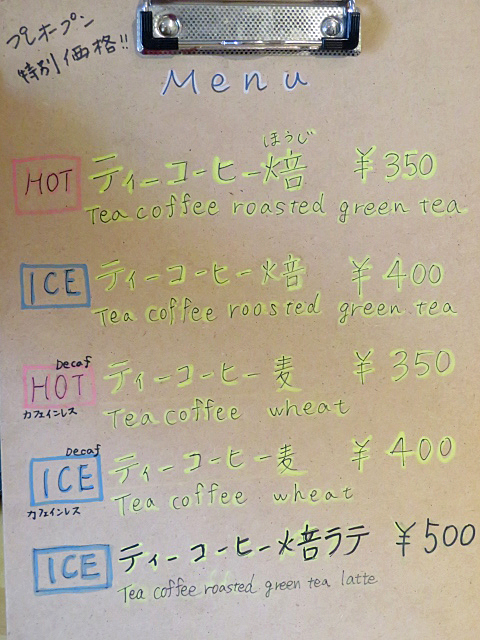 プレオープン
特別価格!!
Menu
ほうじ
HOT ティーコーヒー焙 ¥350
Tea coffee roasted green tea
ICE ティーコーヒー焙 ¥400
Tea coffee roosted green tea
Decaf
HOT ティーコーヒー麦 ¥350
カフェインレス
Tea coffee wheat
Decaf
ICE ティーコーヒー麦 ¥400
Tea coffee wheat
カフェインレス
ICE ティーコーヒー焙ラテ ¥500
Tea coffee roasted green tea latte